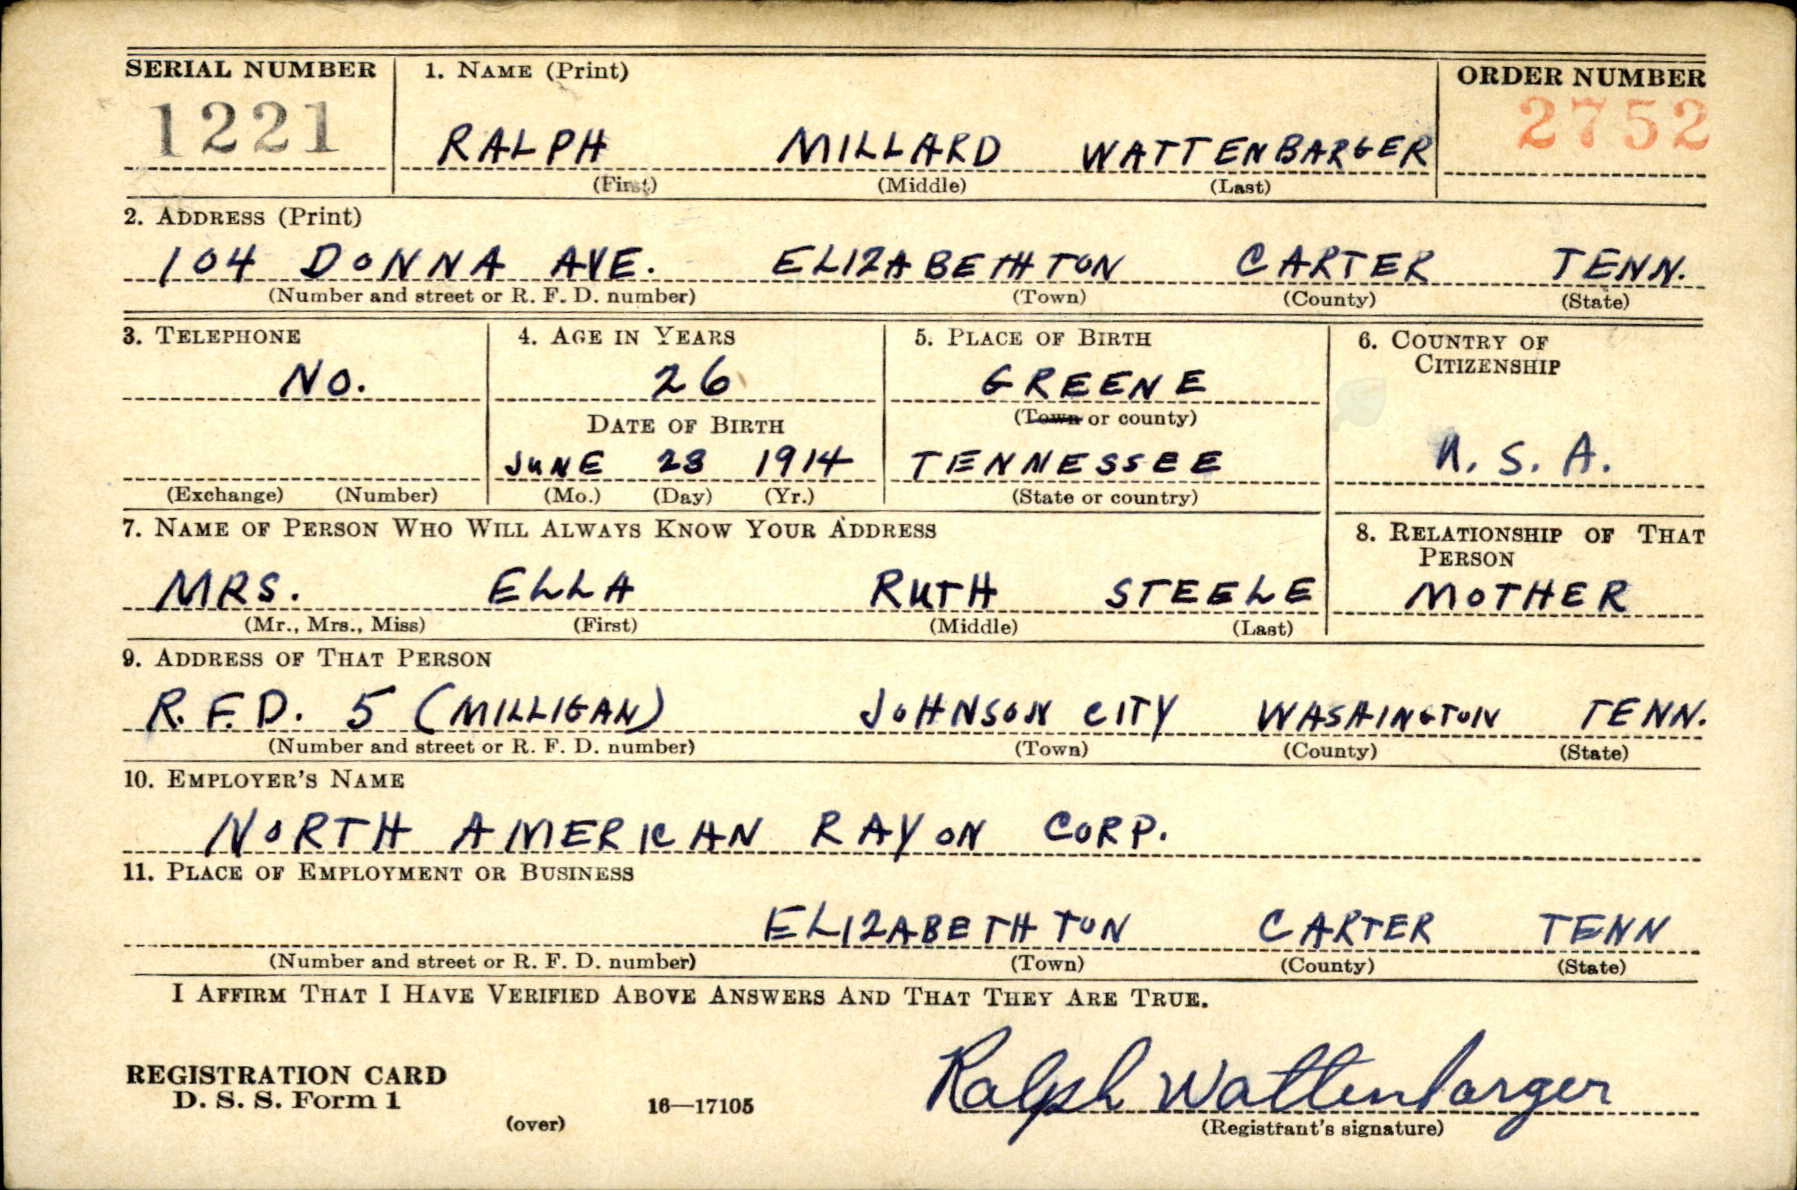 SERIAL NUMBER 1. NAME (Print) ORDER NUMBER
1221 RALPH MILLARD WATTENBARGER 2752
(First) (Middle) (Last)
2. ADDRESS (Print)
104 DONNA AVE. ELIZABETHTON CARTER TENN.
(Number and street or R. F. D. number) (Town) (County) (State)
3. TELEPHONE 4. AGE IN YEARS 5. PLACE OF BIRTH 6. COUNTRY OF
CITIZENSHIP
NO. 26 GREENE
DATE OF BIRTH (Town or county)
JUNE 28 1914 TENNESSEE U. S. A.
(Exchange) (Number) (Mo.) (Day) (Yr.) (State or country)
7. NAME OF PERSON WHO WILL ALWAYS KNOW YOUR ADDRESS 8. RELATIONSHIP OF THAT
PERSON
MRS. ELLA RUTH STEELE MOTHER
(Mr., Mrs., Miss) (First) (Middle) (Last)
9. ADDRESS OF THAT PERSON
R.F.D. 5 (MILLIGAN) JOHNSON CITY WASHINGTON TENN.
(Number and street or R. F. D. number) (Town) (County) (State)
10. EMPLOYER'S NAME
NORTH AMERICAN RAYON CORP.
11. PLACE OF EMPLOYMENT OR BUSINESS
ELIZABETHTON CARTER TENN
(Number and street or R. F. D. number) (Town) (County) (State)
I AFFIRM THAT I HAVE VERIFIED ABOVE ANSWERS AND THAT THEY ARE TRUE.
REGISTRATION CARD
D. S. S. Form 1 16—17105 Ralph Wattenbarger
(over) (Registrant's signature)